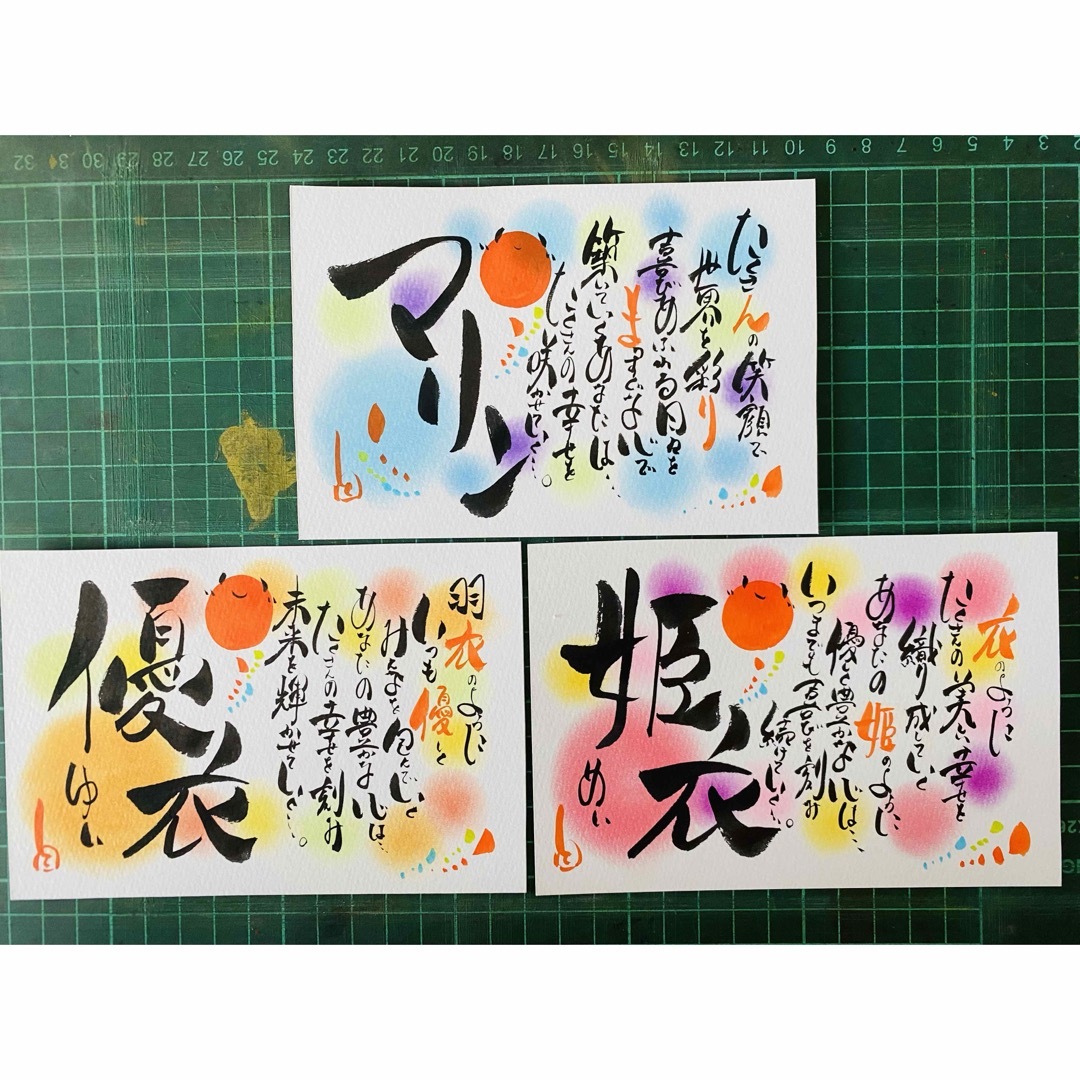 32 3 30 29 28 27 26 25 24 23 22 21 20 19 18 17 16 15 14 13 12 11 10 9 8 7 6 5 4 3 2
たくさんの笑顔で
世界を彩り
喜びあふれる日々を
まっすぐな心で
築いていくあなたは、…
たくさんの幸せを
咲かせていく…。
マリン
羽衣のように
いつも優しく
みんなを包んでいく
あなたの豊かな心は、…
たくさんの幸せを刻み
未来を輝かせていく…。
優衣
ゆい
衣のように
たくさんの美しい幸せを
織り成していく
あなたの姫のように
優しく豊かな心は、…
いつまでも喜びを刻み
続けていく…。
姫衣
めい